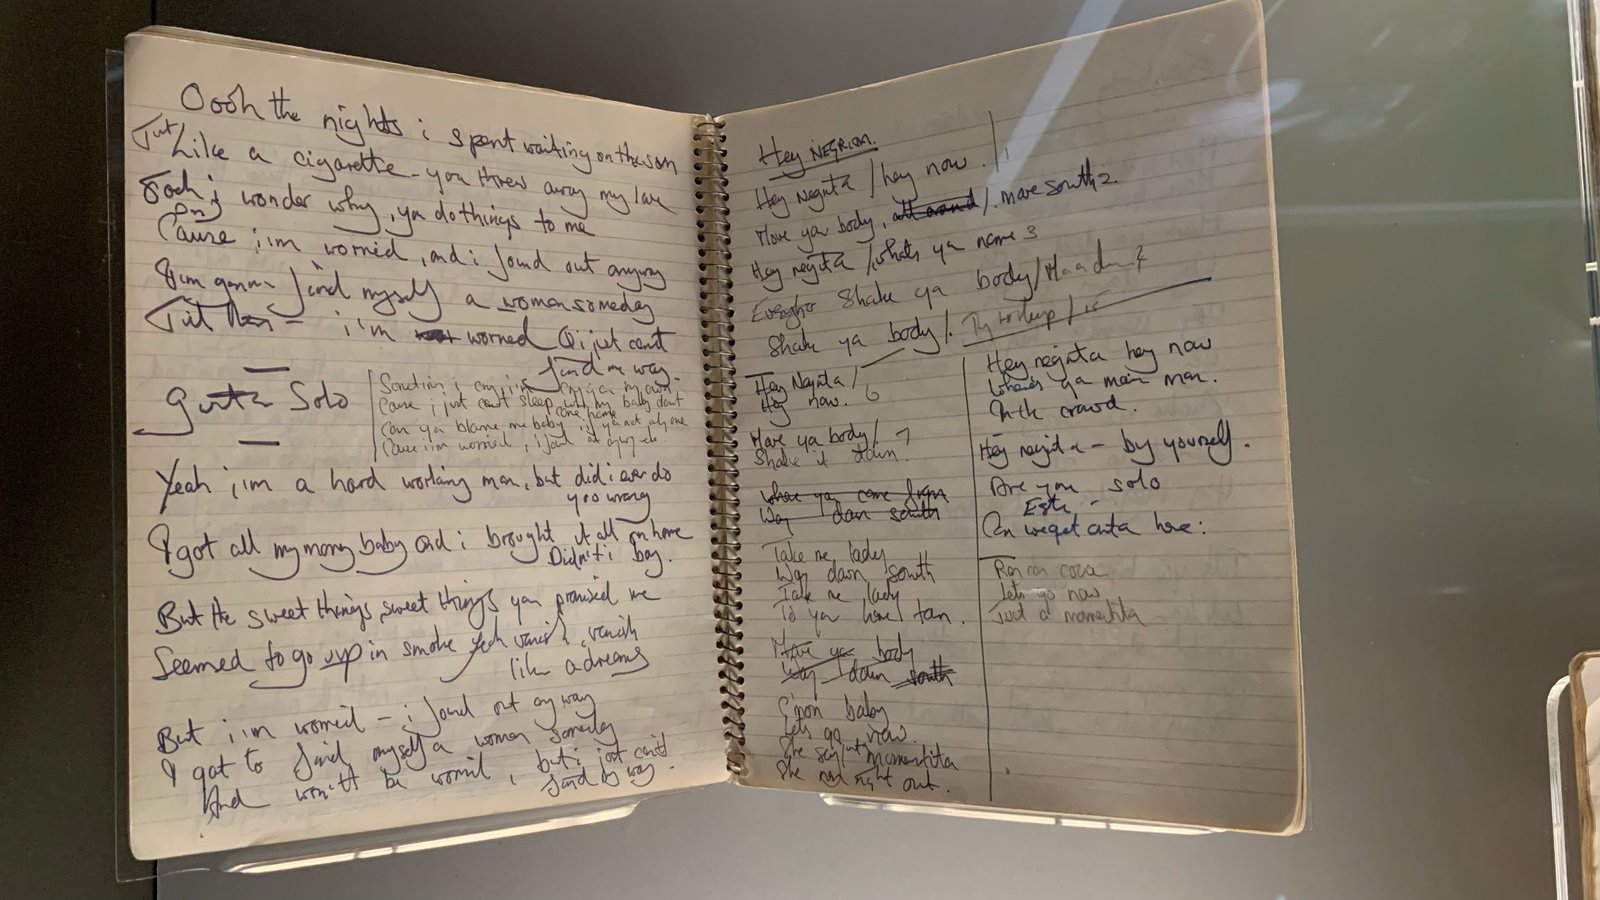 Oooh the nights i spent waiting on the
Like a cigarette - you threw away my
Oooh i wonder why, you do things to me
Cause i'm worried, and i found out anyway
I'm gonna find myself a woman someday
Till then - i'm worried & i just can't
find me way.
guitar Solo
Cause i just can't sleep baby don't
come home
Can ya blame me baby if ya not
Cause i'm worried, i found
Yeah i'm a hard working man, but did i ever do
you wrong
I got all my money baby and i brought it all on home
Didn't i boy.
But the sweet things, sweet things you promised me
Seemed to go up in smoke yeah vanish, vanish
like a dreams
But i'm worried - i found out anyway
I got to find myself a woman someday
And won't be worried, but i just can't
find way.
Hey
Hey Negrita / hey now.
Move your body, all around /. move south 2
Hey negrita / whats ya name 3
Shake ya body /
Shake ya body /.
Hey Negrita /
Hey now. 6
Move ya body / 7
Shake it down.
Where ya come from
Way down south
Take me lady
Way down south
Take me lady
To your home town.
Move ya body
Way down south
C'mon baby
Lets go now.
She say momentita
She right out.
Hey negrita hey now
Where's ya main man.
In the crowd.
Hey negrita - by yourself.
Are you solo
Can we get outa here.
Lets go now
Just a momentita